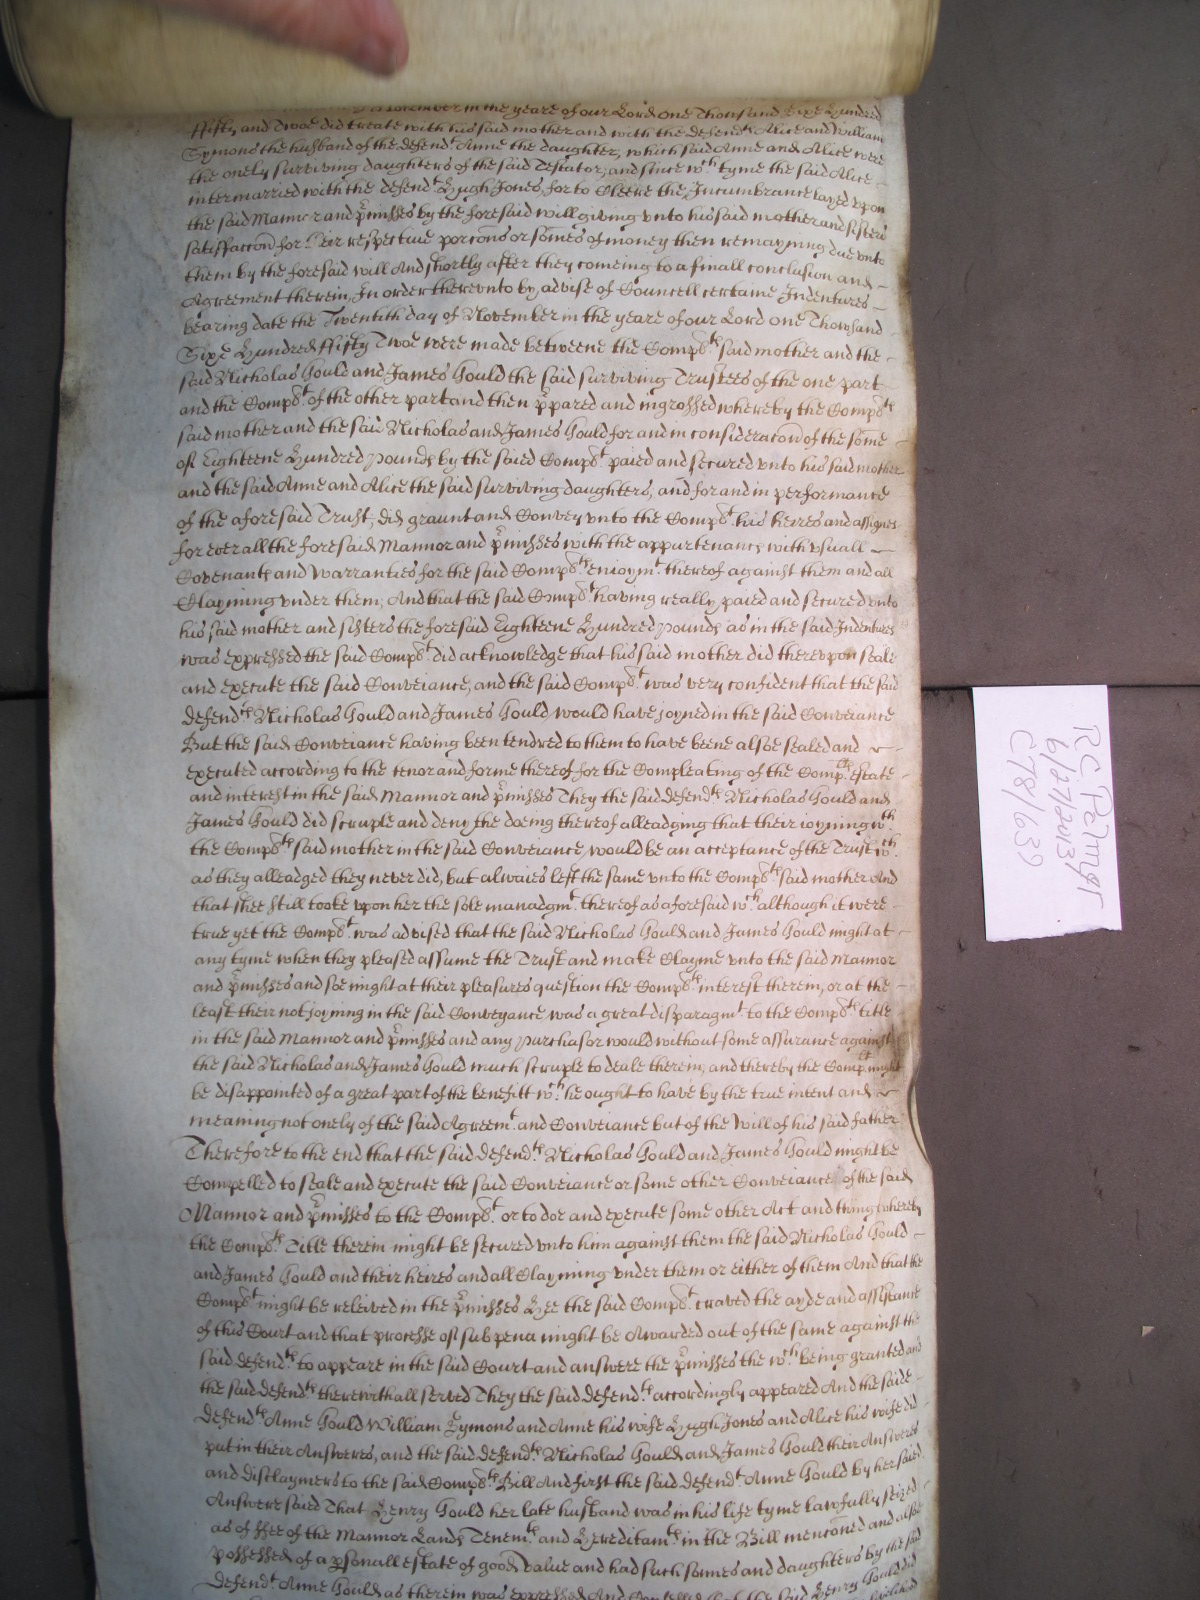 November in the yeare of our Lord One Thousand Sixe Hundred
ffifty and Twoe did treate with his said mother and with the defend.ts Alice and William
Symons the husband of the defend.t Anne the daughter, which said Anne and Alice were
the onely surviving daughters of the said Testator, and since w.ch tyme the said Alice
intermarried with the defend.t Hugh Jones, for to Cleere the Incumbrance layed upon
the said Mannor and p̃misses by the foresaid will giving unto his said mother and sisters
satisfaccõn for their respective porcõns or somes of money then remayning due unto
them by the foresaid will And shortly after they comeing to a finall conclusion and
Agreement therein, In order thereunto by advise of Councell certaine Indentures
bearing date the Twentith day of November in the yeare of our Lord one Thowsand
Sixe Hundred ffifty Twoe were made betweene the Comp.lts said mother and the
said Nicholas Gould and James Gould the said surviving Trustees of the one part
and the Comp.lt of the other part and then p̃pared and ingrossed whereby the Comp.lts
said mother and the said Nicholas and James Gould for and in consideracõn of the some
of Eighteene Hundred pounds by the saied Comp.lt paied and secured unto his said mother
and the said Anne and Alice the said surviving daughters, and for and in performance
of the aforesaid Trust, did graunt and Convey unto the Comp.lt his heires and assignes
for ever all the foresaid Mannor and p̃misses with the appurtenancs with usuall
Covenants and warranties for the said Comp.lts enioym.t thereof against them and all
Clayming under them, And that the said Comp.lt having really paied and secured unto
his said mother and sisters the foresaid Eighteene Hundred pounds as in the said Indentures
was expressed the said Comp.lt did acknowledge that his said mother did thereupon seale
and execute the said Conveiance, and the said Comp.lt was very confident that the said
defend.ts Nicholas Gould and James Gould would have joyned in the said Conveiance
But the said Conveiance having been tendred to them to have beene alsoe sealed and
executed according to the tenor and forme thereof for the Compleating of the Comp.lts estate
and interest in the said Mannor and p̃misses They the said defend.ts Nicholas Gould and
James Gould did scruple and deny the doeing thereof alleadging that their ioyning w.th
the Comp.lts said mother in the said Conveiance, would be an acceptance of the Trust w.ch
as they alleadged they never did, but alwaies left the same unto the Comp.lts said mother And
that shee still tooke upon her the sole manadgm.t thereof as aforesaid w.ch although it were
true yet the Comp.lt was advised that the said Nicholas Gould and James Gould might at
any tyme when they pleased assume the Trust and make Clayme unto the said Mannor
and p̃misses and soe might at their pleasures question the Comp.lts interest therein, or at the
least their not joyning in the said Conveyance was a great disparagm.t to the Comp.lts title
in the said Mannor and p̃misses and any purchasor would without some assurance against
the said Nicholas and James Gould much scruple to deale therein, and thereby the Comp.lt might
be disappointed of a great part of the benefitt w.ch he ought to have by the true intent and
meaning not onely of the said Agreem.t and Conveiance but of the Will of his said father
Therefore to the end that the said defend.ts Nicholas Gould and James Gould might be
Compelled to seale and execute the said Conveiance or some other Conveiance of the said
Mannor and p̃misses to the Comp.lt or to doe and execute some other Act and thing whereby
the Comp.lts Title therein might be secured unto him against them the said Nicholas Gould
and James Gould and their heires and all Clayming under them or either of them And that the
Comp.lt might be releived in the p̃misses Hee the said Comp.lt craved the ayde and assistance
of this Court and that processe of subpena might be Awarded out of the same against the
said defend.ts to appeare in the said Court and answere the p̃misses the w.ch being granted and
the said defend.ts therewithall served They the said defend.ts accordingly appeared And the saide
defend.ts Anne Gould William Symons and Anne his wife Hugh Jones and Alice his wife did
put in their Answeres, and the said defend.ts Nicholas Gould and James Gould their Answeres
and disclaymers to the said Comp.lts Bill And first the said defend.t Anne Gould by her said
Answere said That Henry Gould her late husband was in his life tyme lawfully seized
as of ffee of the Mannor Lands Tenem.ts and Hereditam.ts in the Bill mencõned and alsoe
possessed of a p̃sonall estate of good value and had such sonnes and daughters by the said
defend.t Anne Gould as therein was expressed And the said Henry Gould did
RC Palmer
6/27/2013
C78/639